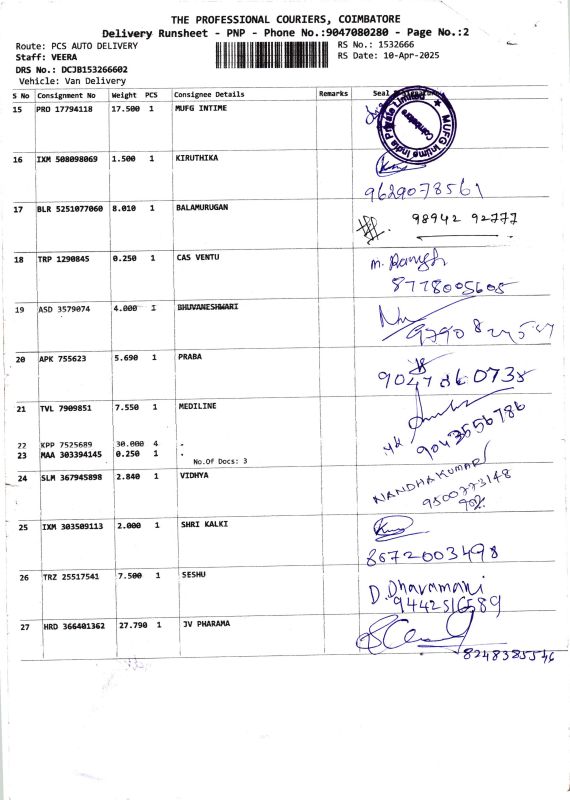 THE PROFESSIONAL COURIERS, COIMBATORE
Delivery Runsheet - PNP - Phone No.:9047080280 - Page No.:2
Route: PCS AUTO DELIVERY
RS No.: 1532666
Staff: VEERA
RS Date: 10-Apr-2025
DRS No.: DCJB153266602
Vehicle: Van Delivery
S No Consignment No Weight PCS Consignee Details Remarks Seal
15 PRO 17794118 17.500 1 MUFG INTIME
MUFG Intime India Private Limited
Coimbatore
16 IXM 508098069 1.500 1 KIRUTHIKA
9629078561
17 BLR 5251077060 8.010 1 BALAMURUGAN
98942 92777
18 TRP 1290845 0.250 1 CAS VENTU
8778005605
19 ASD 3579074 4.000 1 BHUVANESHWARI
20 APK 755623 5.690 1 PRABA
21 TVL 7909851 7.550 1 MEDILINE
9043556786
22 KPP 7525689 30.000 4 .
23 MAA 303394145 0.250 1 .
No.Of Docs: 3
24 SLM 367945898 2.840 1 VIDHYA
NANDHAKUMAR
9500773148
25 IXM 303509113 2.000 1 SHRI KALKI
8072003498
26 TRZ 25517541 7.500 1 SESHU
D. Dharamani
9442516589
27 HRD 366401362 27.790 1 JV PHARAMA
8248385546